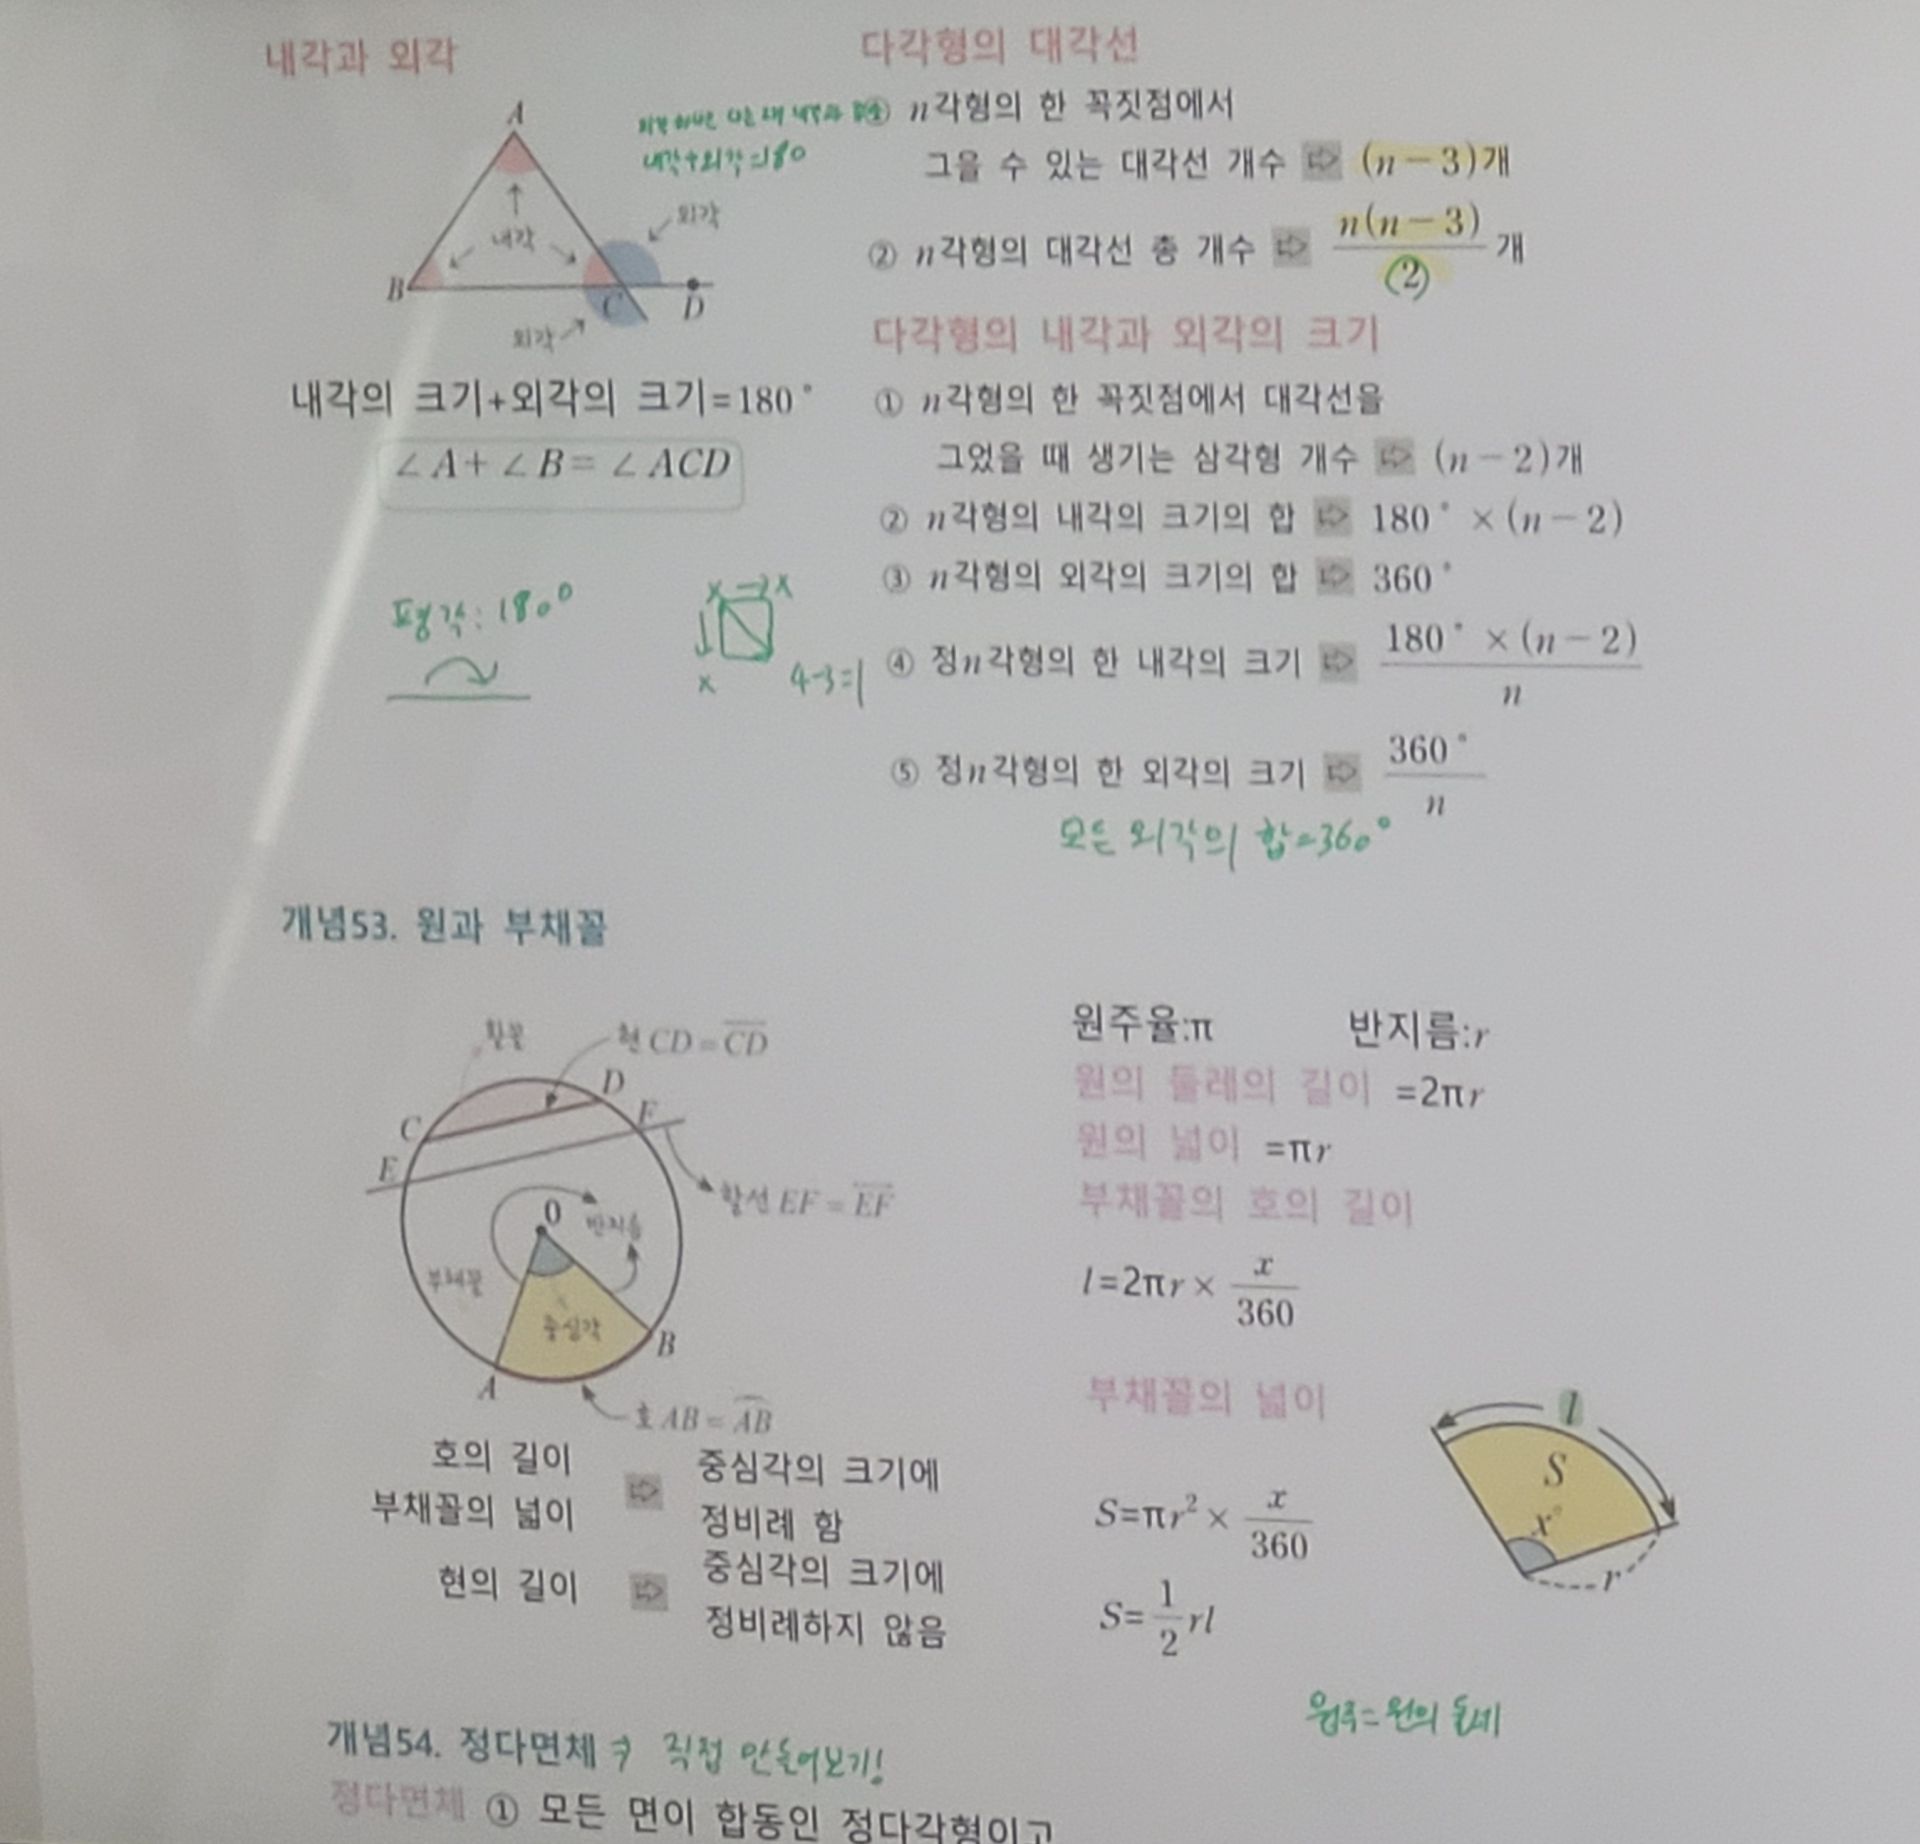 내각과 외각
A
내각+외각=180
외각
내각
B
C
D
외각
내각의 크기+외각의 크기=180°
∠A+∠B=∠ACD
평각: 180°
x → x
x
4-3=1
다각형의 대각선
① n각형의 한 꼭짓점에서
그을 수 있는 대각선 개수 ⇨ (n-3)개
② n각형의 대각선 총 개수 ⇨ n(n-3)/(2) 개
다각형의 내각과 외각의 크기
① n각형의 한 꼭짓점에서 대각선을
그었을 때 생기는 삼각형 개수 ⇨ (n-2)개
② n각형의 내각의 크기의 합 ⇨ 180°×(n-2)
③ n각형의 외각의 크기의 합 ⇨ 360°
④ 정n각형의 한 내각의 크기 ⇨ 180°×(n-2)/n
⑤ 정n각형의 한 외각의 크기 ⇨ 360°/n
모든 외각의 합=360°
개념53. 원과 부채꼴
활꼴
현 CD=C̅D̅
D
F
C
E
할선 EF=E̅F̅
O
반지름
부채꼴
중심각
B
A
호 AB=A͡B
호의 길이
부채꼴의 넓이
⇨
중심각의 크기에
정비례 함
현의 길이
⇨
중심각의 크기에
정비례하지 않음
원주율:π 반지름:r
원의 둘레의 길이 =2πr
원의 넓이 =πr
부채꼴의 호의 길이
l=2πr×x/360
부채꼴의 넓이
S=πr²×x/360
S=1/2 rl
l
S
x°
r
원주=원의 둘레
개념54. 정다면체 직접 만들어보기!
정다면체 ① 모든 면이 합동인 정다각형이고